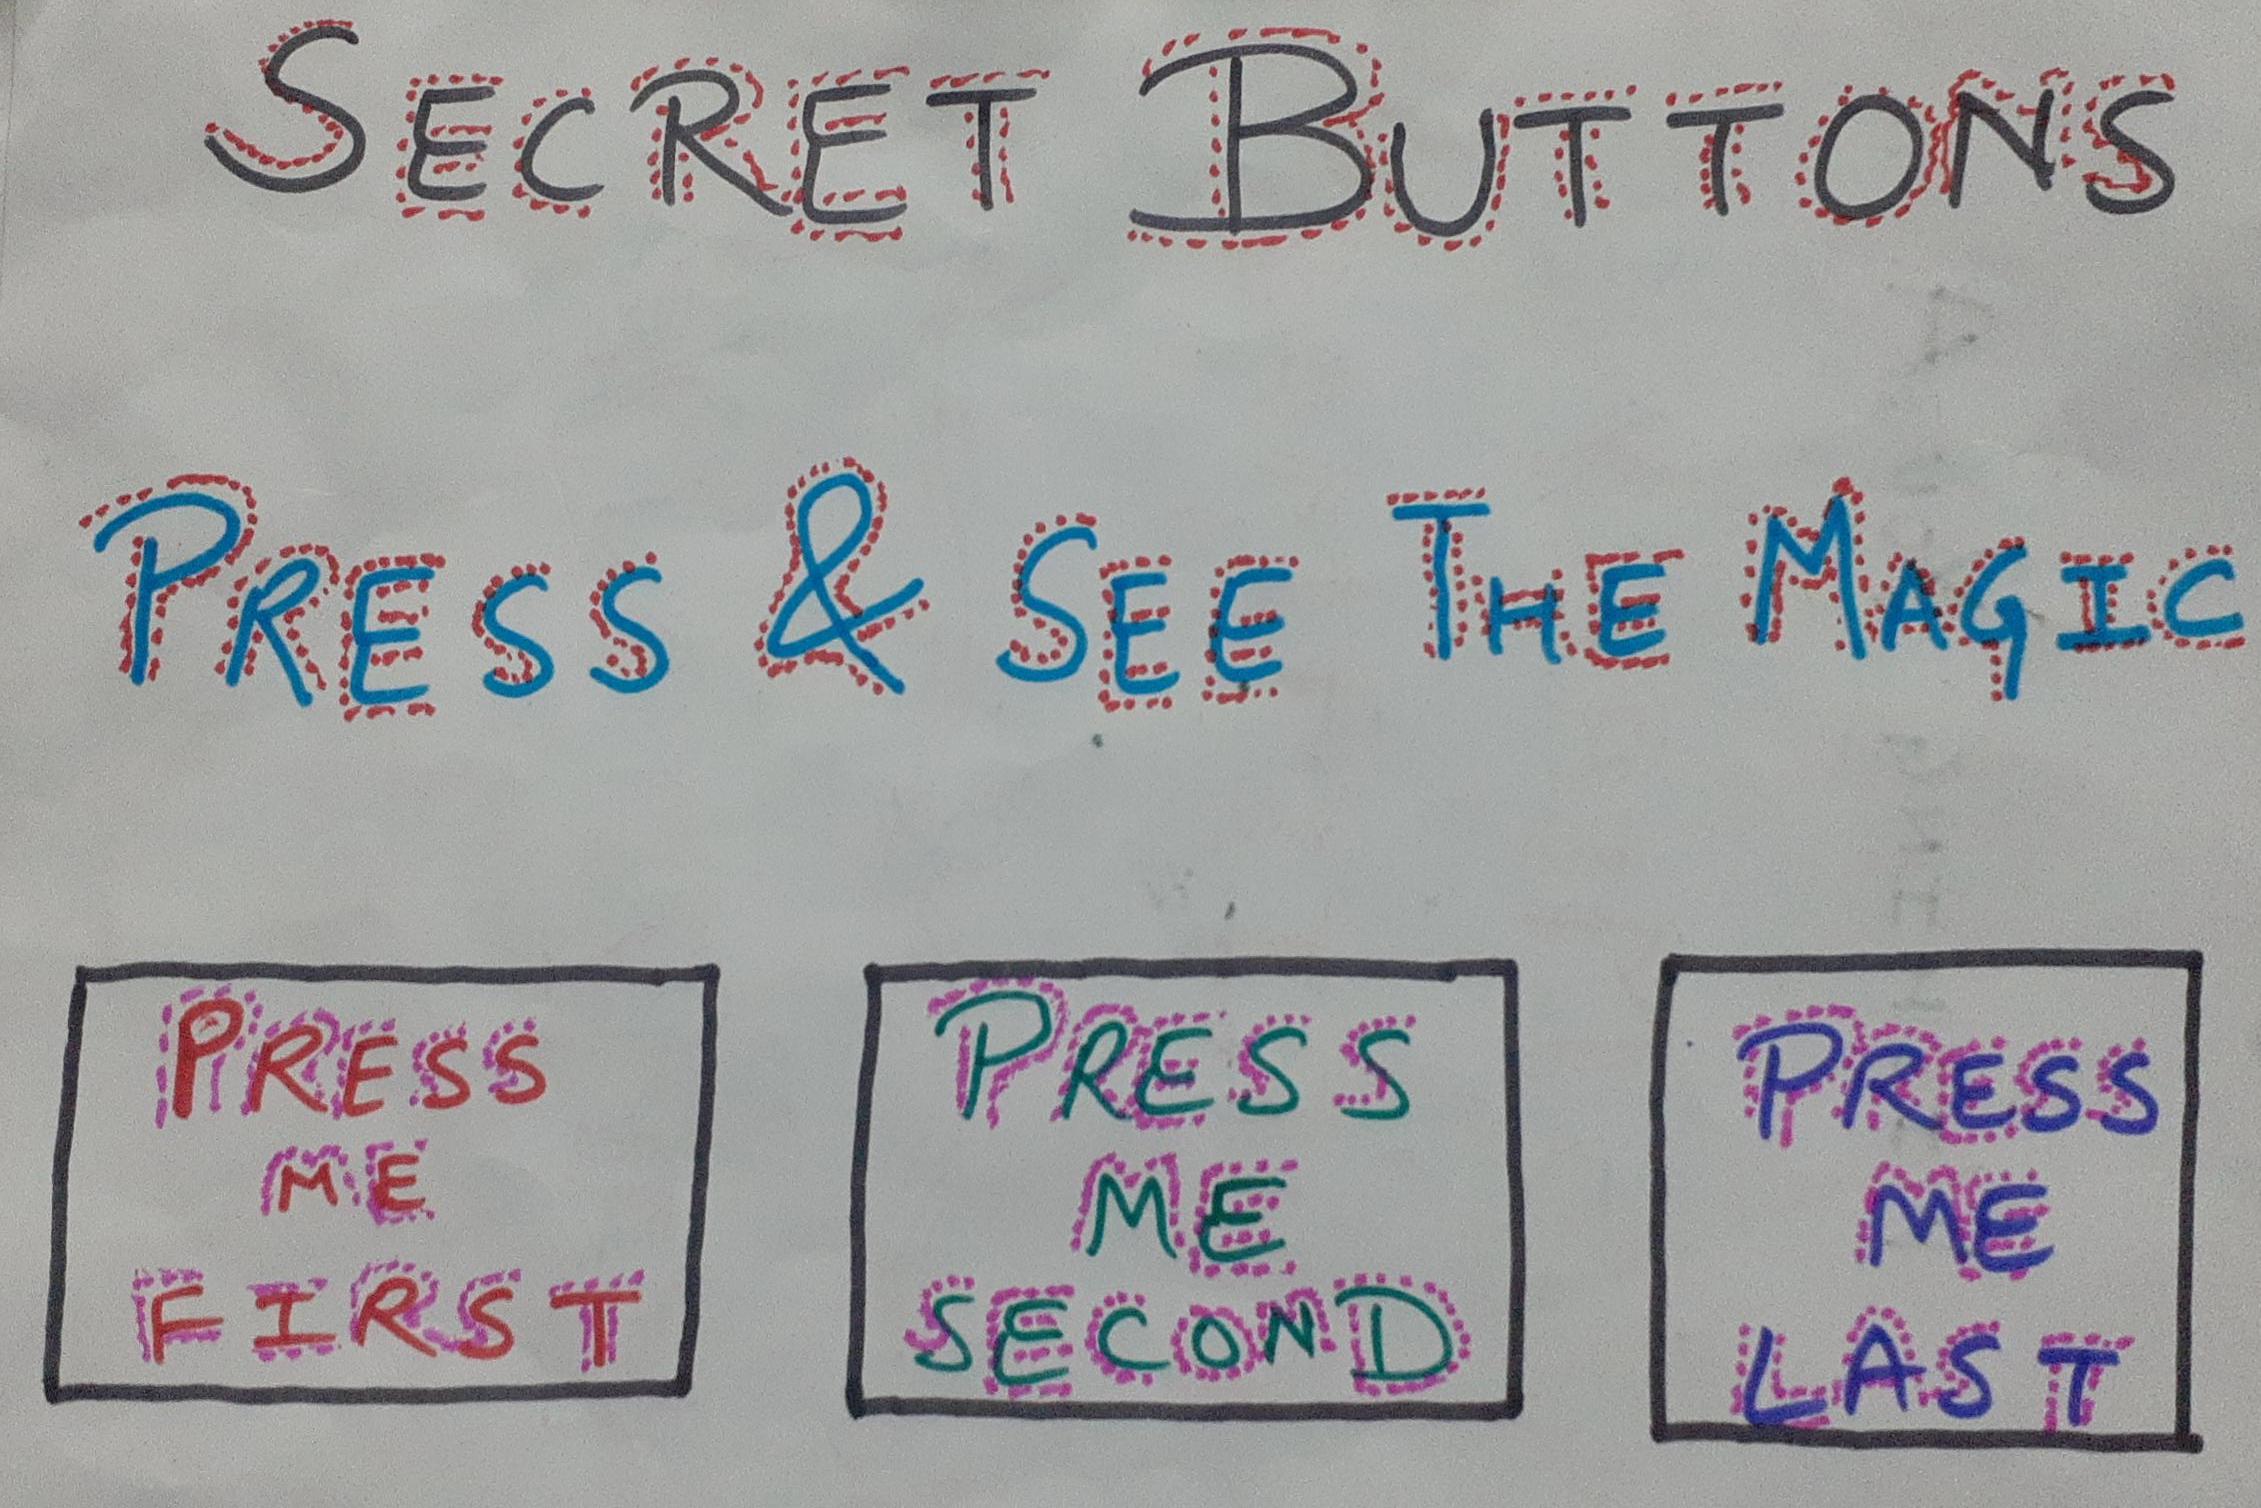 SECRET BUTTONS
PRESS & SEE THE MAGIC
PRESS
ME
FIRST
PRESS
ME
SECOND
PRESS
ME
LAST